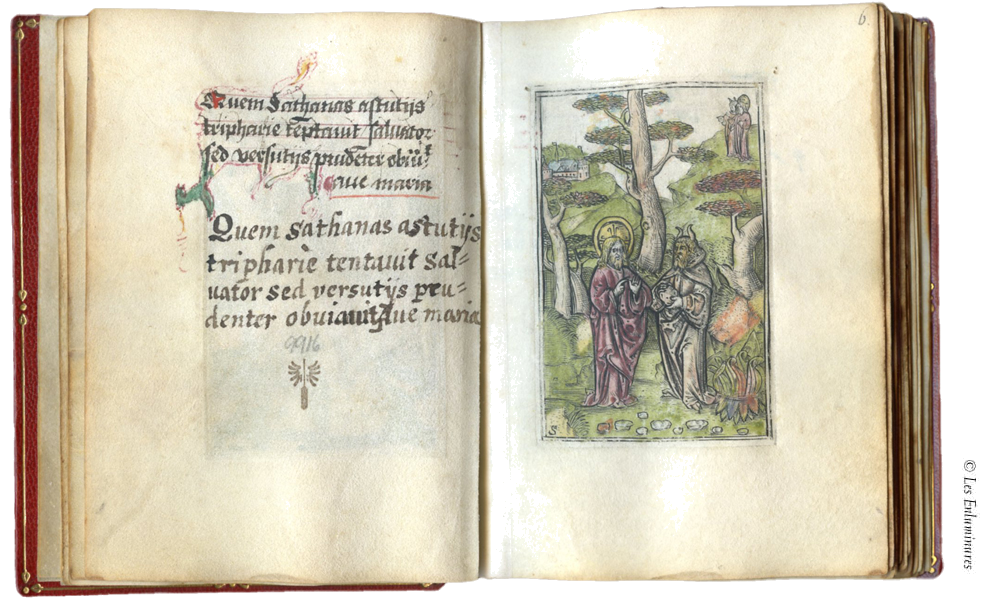 Quem Sathanas astutijs
tripharie tēptauit saluator
sed versutijs prudēter obiuī
aue maria
Quem Sathanas astutijs
tripharie tentauit Sal=
uator sed versutijs pru=
denter obuiauit Aue maria
9916
6.
S
© Les Enluminures